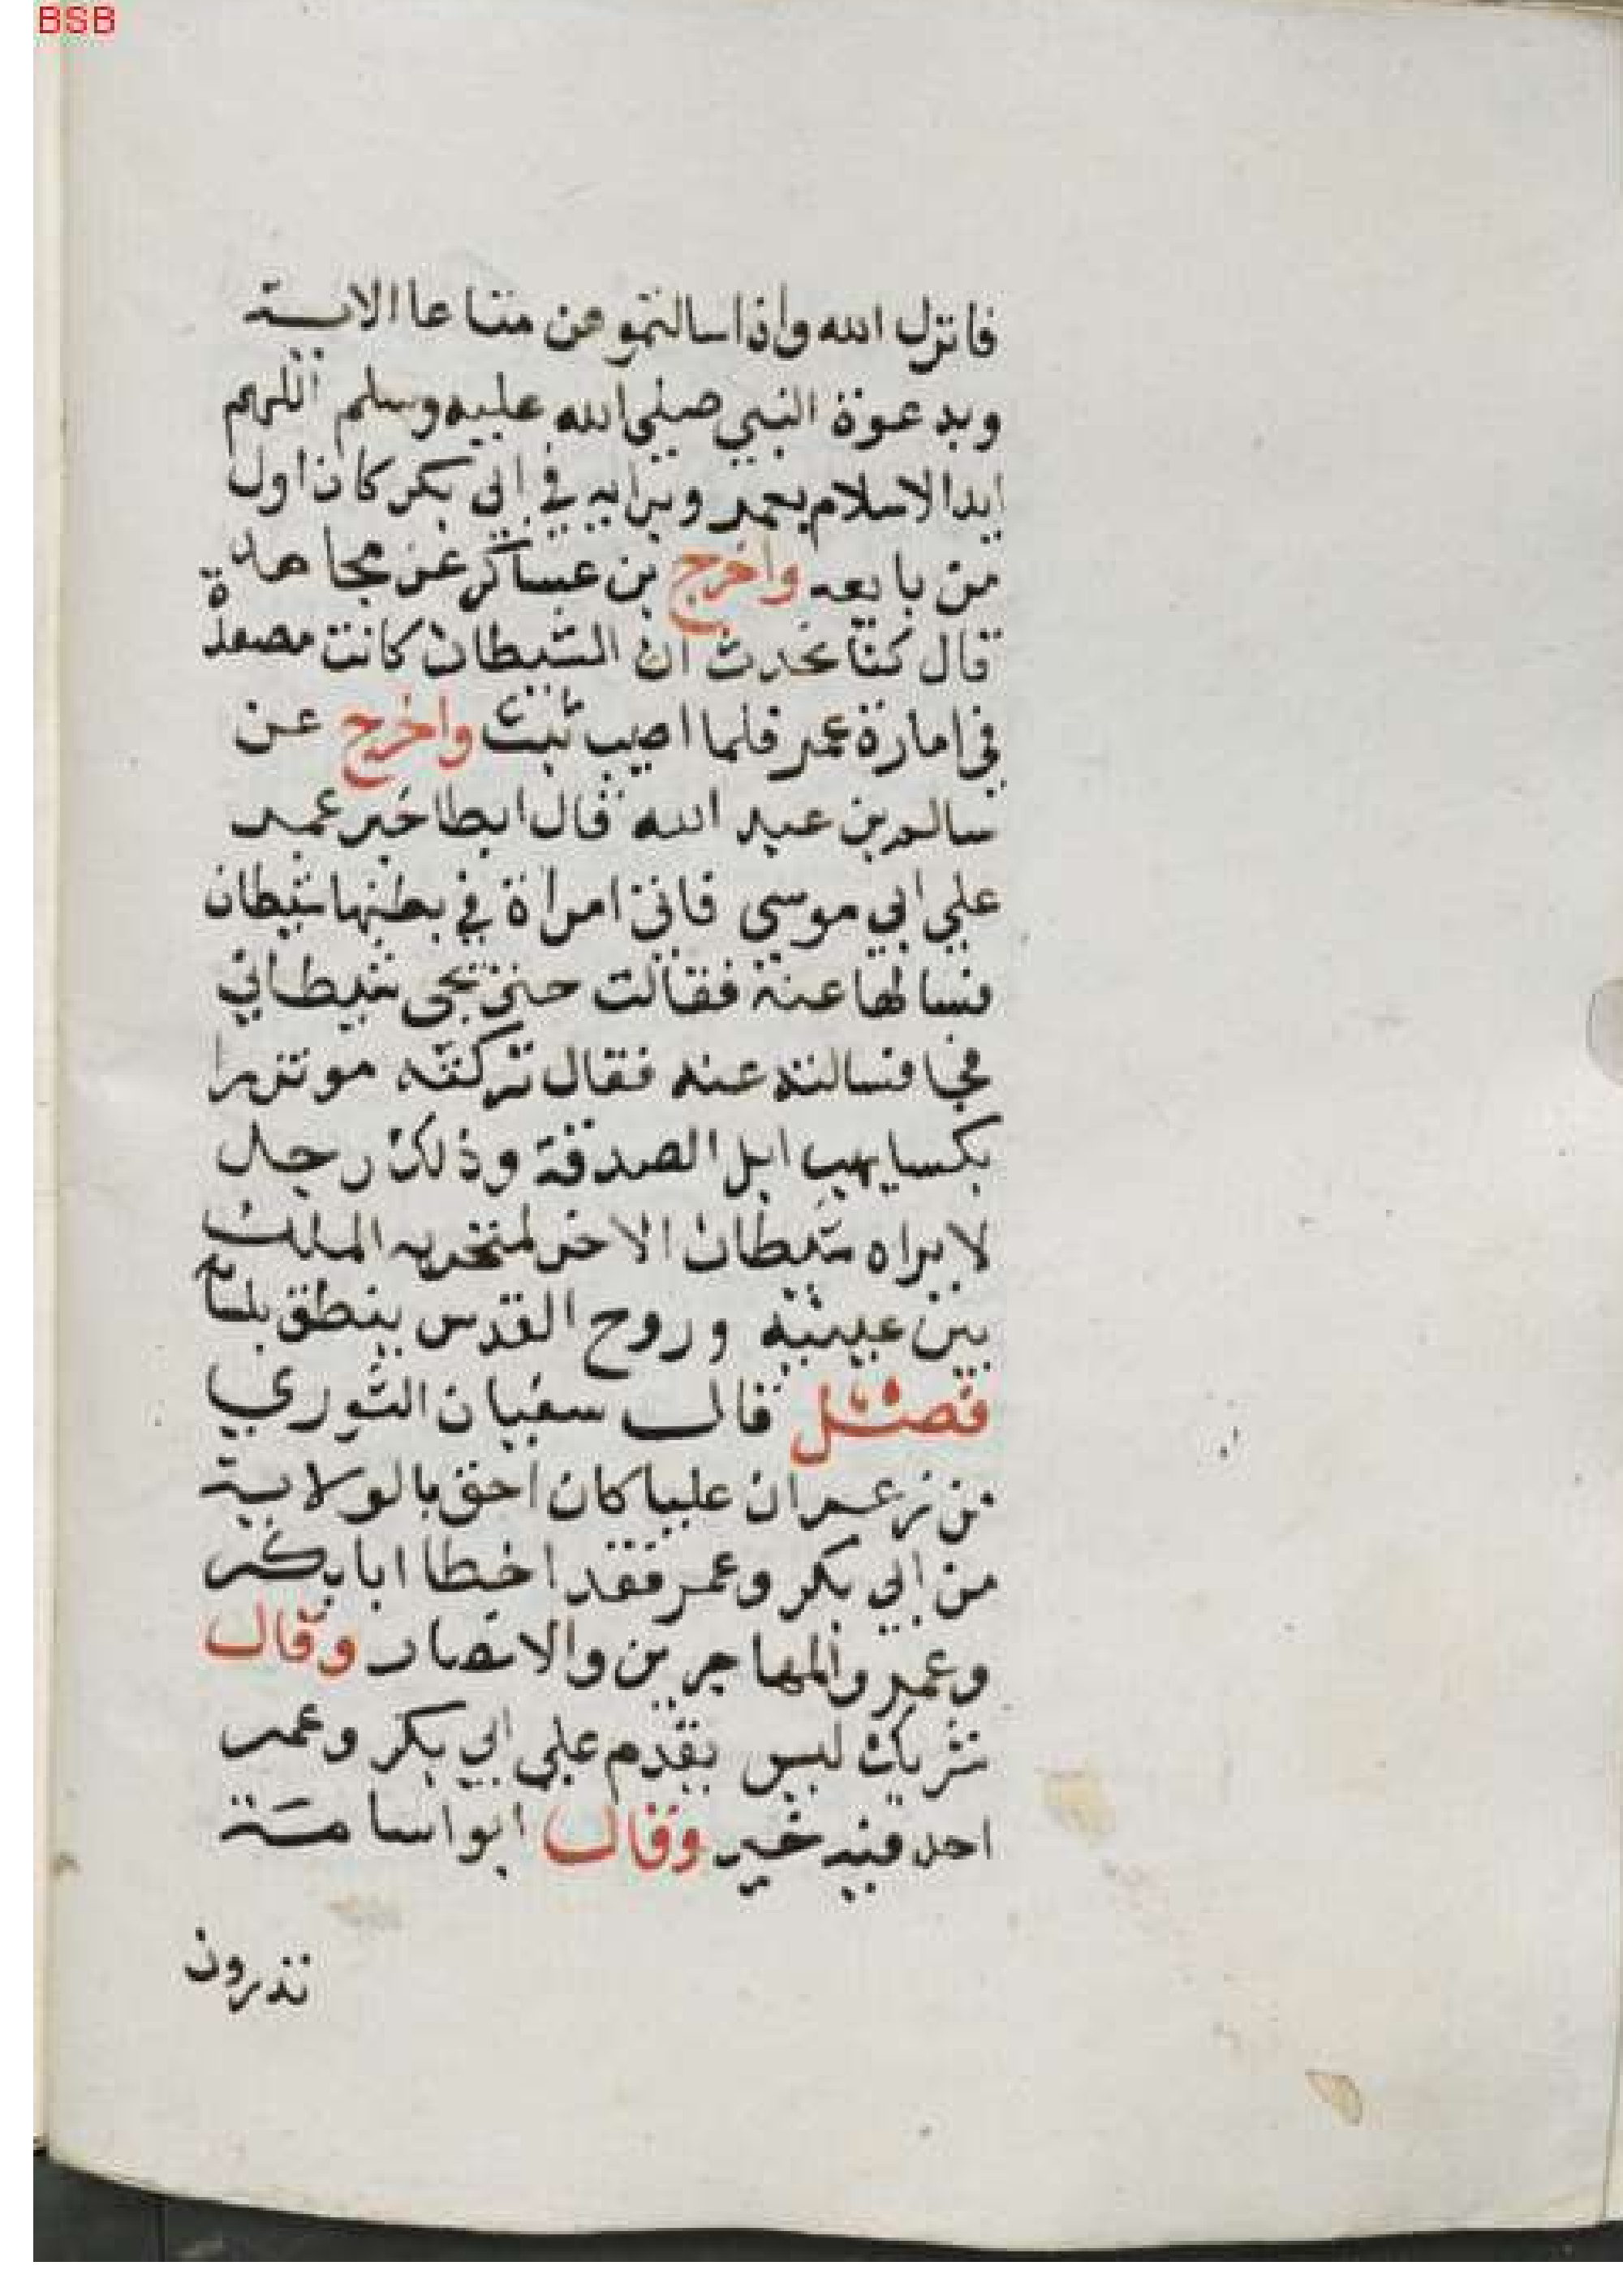 BSB
فانزل الله واذا سالتمو عن متاعا الاية
وبدعوة النبي صلى الله عليه وسلم اللهم
ايد الاسلام بعمر وبرايه في ابى بكر كان اول
من بايعه واخرج بن عساكر عن مجاهد
قال كنا نحدث ان الشيطان كانت مصفدة
في امارة عمر فلما اصيب بثت واخرج عن
سالم بن عبد الله قال ابطا خبر عمر
على ابي موسى فاتى امراة في بطنها شيطان
فسالها عنه فقالت حتى يجى شيطاني
فجا فسالته عنه فقال تركته موتزرا
بكسا يهب ابل الصدقة وذلك رجل
لا يراه شيطان الا خر لمنخريه الملك
بين عينيه وروح القدس ينطق بلسانه
فصل قال سفيان الثوري
من زعم ان عليا كان احق بالولاية
من ابي بكر وعمر فقد اخطا ابابكر
وعمر والمهاجرين والانصار وقال
شريك ليس يقدم علي ابي بكر وعمر
احد فيه خير وقال ابو اسامة
تدرون